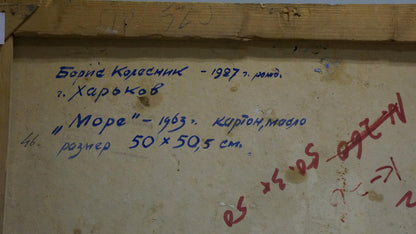 Борис Колесник - 1927 г. рожд.
г. Харьков
„Море" - 1963 г. картон, масло
46.
размер 50 × 50,5 см.
№ 260
50.3 × 50